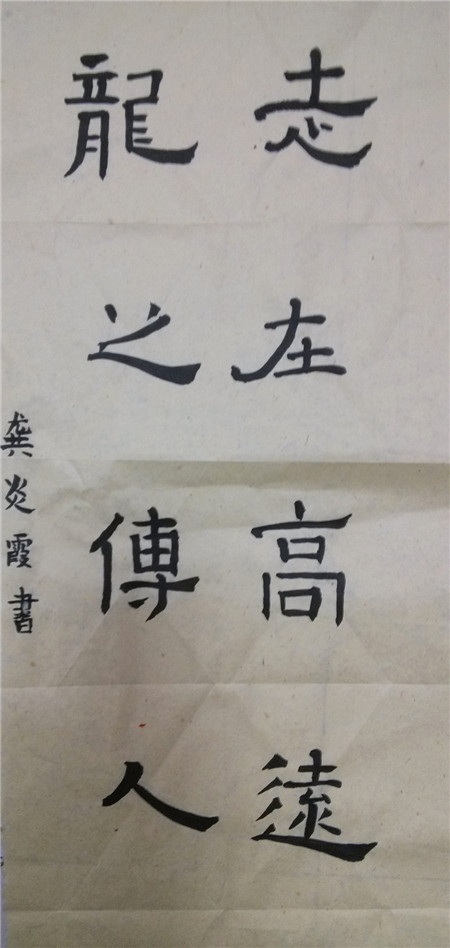 志在高遠
龍之傳人
龚炎霞書